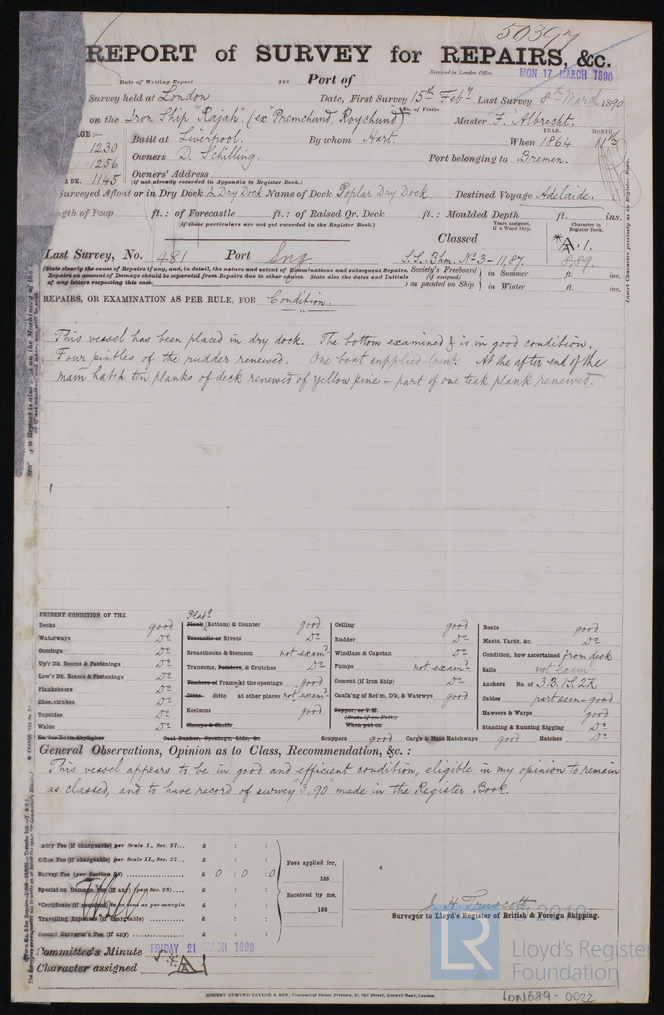 50397
REPORT of SURVEY for REPAIRS, &c.
Date of Writing Report
Port of
Received in London Office.
MON 17 MARCH 1890
Survey held at London Date, First Survey 15th Feby Last Survey 8th March 1890
No. of Visits
on the Iron Ship "Rajah" (ex "Premchund Roychund") Master F. Albrecht.
1230
Built at Liverpool. By whom Hart. When 1864
YEAR. MONTH.
1256
Owners D. Schilling. Port belonging to Bremen.
1145
Owners' Address
(if not already recorded in Appendix to Register Book.)
Surveyed Afloat or in Dry Dock In Dry Dock Name of Dock Poplar Dry Dock Destined Voyage Adelaide.
Length of Poop ft.: of Forecastle ft.: of Raised Qr. Deck ft.: Moulded Depth ft. ins.
(if these particulars are not yet recorded in the Register Book.)
Years assigned, if a Wood Ship.
Character in Register Book.
Classed A.1.
Last Survey, No. 481 Port Sng. S.S. Bhn. No 3 - 11,87. 8,89.
(State clearly the cause of Repairs if any, and, in detail, the nature and extent of Examinations and subsequent Repairs.
Repairs on account of Damage should be separated from Repairs due to other causes. State also the dates and Initials
of any letters respecting this case.
Society's Freeboard (if assigned) as painted on Ship in Summer ft. ins.
in Winter ft. ins.
REPAIRS, OR EXAMINATION AS PER RULE, FOR Condition.
This vessel has been placed in dry dock. The bottom examined & is in good condition.
Four pintles of the rudder renewed. One boat supplied (new). At the after end of the
main hatch ten planks of deck renewed of yellow pine & part of one teak plank renewed.
PRESENT CONDITION OF THE
Decks good
Waterways Do
Comings Do
Up'r Dk. Beams & Fastenings Do
Low'r Dk. Beams & Fastenings Do
Planksheers Do
Sheerstrakes Do
Topsides Do
Wales Do
Platg
Plank (Bottom) & Counter good
Treenails or Rivets Do
Breasthooks & Stemson not examd
Transoms, Pointers, & Crutches Do
Timbers or Frames at the openings good
Ditto ditto at other places not examd
Keelsons good
Coal Bunker, Openings, Lids, &c.
Ceiling good
Rudder Do
Windlass & Capstan Do
Pumps not examd
Cement (if Iron Ship) Do
Caulk'ng of Bot'm, D'k, & Watrwys good
Copper, or Y.M.
(State if on Felt)
When put on
Scuppers good Cargo & Main Hatchways good Hatches Do
Boats good
Masts, Yards, &c. Do
Condition, how ascertained from deck
Sails not examd
Anchors No. of 3.B. 1S. 2K
Cables part seen - good
Hawsers & Warps good
Standing & Running Rigging Do
General Observations, Opinion as to Class, Recommendation, &c. :
This vessel appears to be in good and efficient condition, eligible in my opinion to remain
as classed, and to have record of survey 3,90 made in the Register Book.
Entry Fee (if chargeable) per Scale I., Sec. 27... £ : :
Office Fee (if chargeable) per Scale II., Sec. 27... £ : :
Survey Fee (per Section 28) £ 0 : 0 : 0
Special or Damage Fee (if any) (per Sec. 28) £ : :
Certificate (if required) to be sent as per margin £ : :
Travelling Expenses (if chargeable) £ : :
Second Surveyor's Fee (if any) £ : :
Fees applied for,
188
Received by me,
188
J. H. Truscott.
Surveyor to Lloyd's Register of British & Foreign Shipping.
Committee's Minute FRIDAY 21 MARCH 1890
Character assigned A1
LR
Lloyd's Register
Foundation
LON689-0022